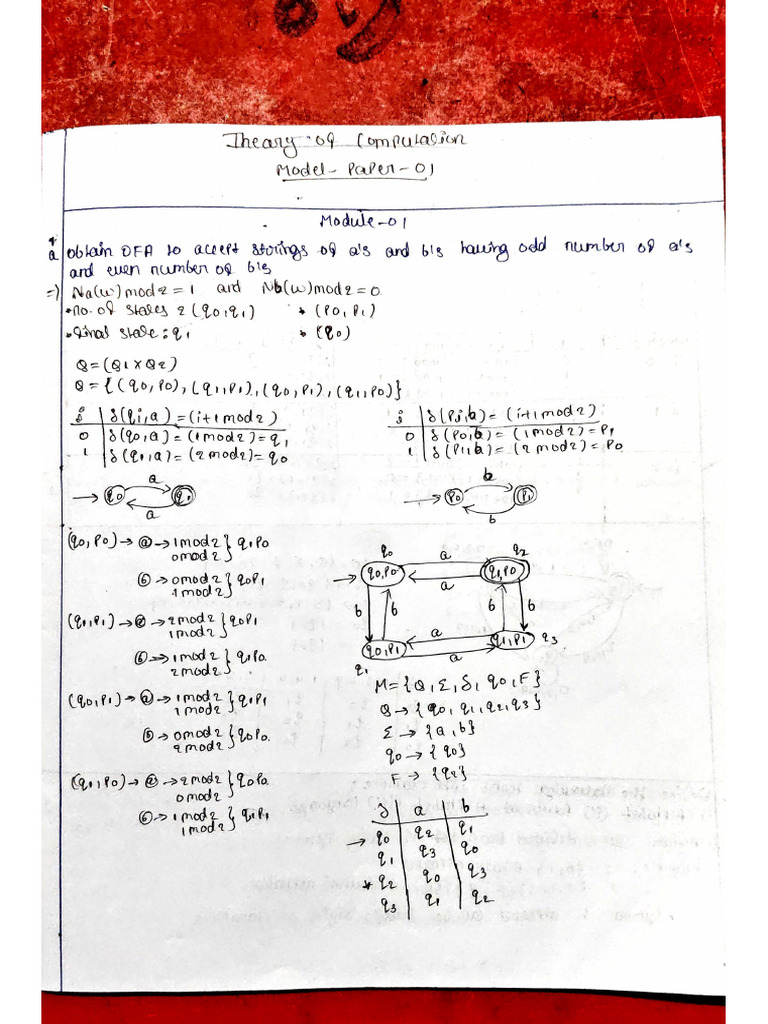 Theory of Computation
Model - Paper - 01
Module - 01
1
a obtain DFA to accept strings of a's and b's having odd number of a's
and even number of b's
=) Na(w) mod 2 = 1 and Nb(w) mod 2 = 0
• no. of states 2 (q0, q1) • (P0, P1)
• final state : q1 • (P0)
Q = (Q1 x Q2)
Q = {(q0, P0), (q1, P1), (q0, P1), (q1, P0)}
i δ(qi, a) = (i+1 mod 2)
0 δ(q0, a) = (1 mod 2) = q1
1 δ(q1, a) = (2 mod 2) = q0
j δ(Pj, b) = (i+1 mod 2)
0 δ(P0, b) = (1 mod 2) = P1
1 δ(P1, b) = (2 mod 2) = P0
a
q0 q1
a
b
P0 P1
b
(q0, P0) → a → 1 mod 2 } q1P0
0 mod 2
b → 0 mod 2 } q0P1
1 mod 2
(q1, P1) → a → 2 mod 2 } q0P1
1 mod 2
b → 1 mod 2 } q1P0
2 mod 2
(q0, P1) → a → 1 mod 2 } q1P1
1 mod 2
b → 0 mod 2 } q0P0
2 mod 2
(q1, P0) → a → 2 mod 2 } q0P0
0 mod 2
b → 1 mod 2 } q1P1
1 mod 2
q0 a q2
q0,P0 q1,P0
a
b b b b
a
q0,P1 q1,P1 q3
q1 a
M = {Q, Σ, δ, q0, F}
Q → {q0, q1, q2, q3}
Σ → {a, b}
q0 → {q0}
F → {q2}
δ a b
→ q0 q2 q1
q1 q3 q0
* q2 q0 q3
q3 q1 q2